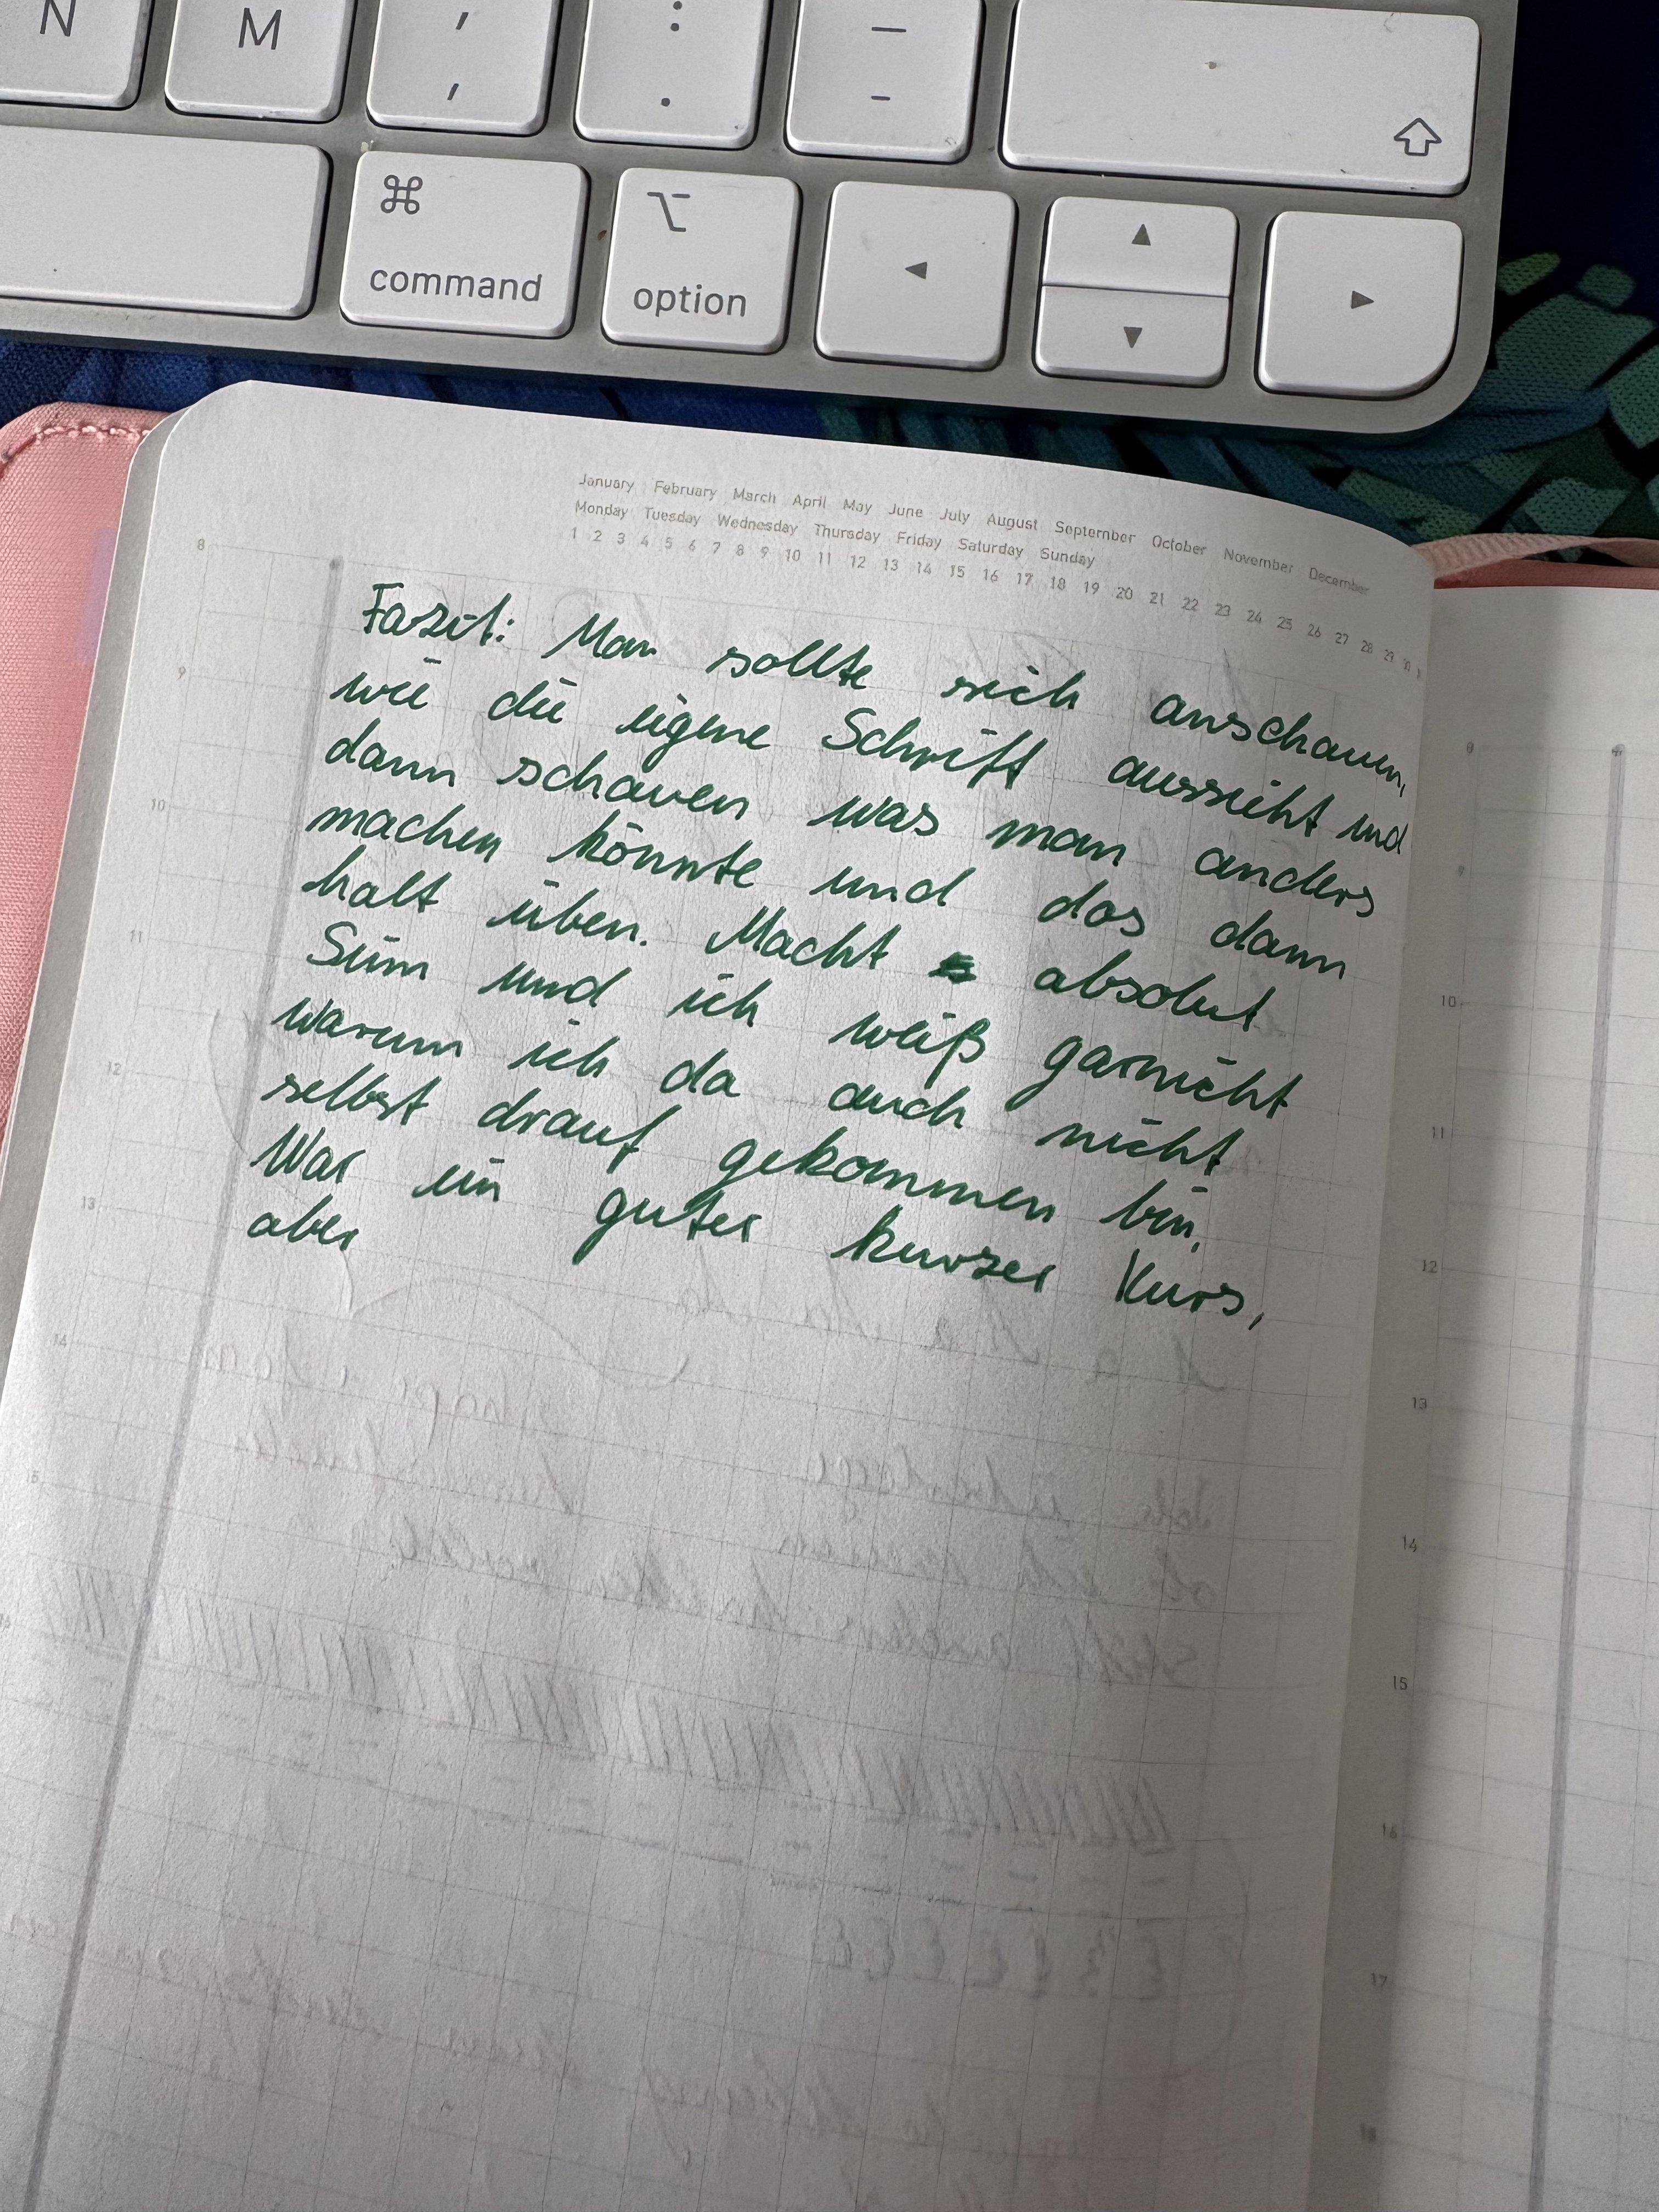 N M , ; : . — -
⌘ command ⌥ option ◄ ▲ ▼ ►
January February March April May June July August September October November December
Monday Tuesday Wednesday Thursday Friday Saturday Sunday
1 2 3 4 5 6 7 8 9 10 11 12 13 14 15 16 17 18 19 20 21 22 23 24 25 26 27 28 29 30
Fazit: Man sollte sich anschauen,
wie die eigene Schrift aussieht und
dann schauen was man anders
machen könnte und das dann
halt üben. Macht absolut
Sinn und ich weiß garnicht
warum ich da auch nicht
selbst drauf gekommen bin.
War ein guter kurzer Kurs,
aber
8
9
10
11
12
13
14
15
8
9
10
11
12
13
14
15
16
17
18